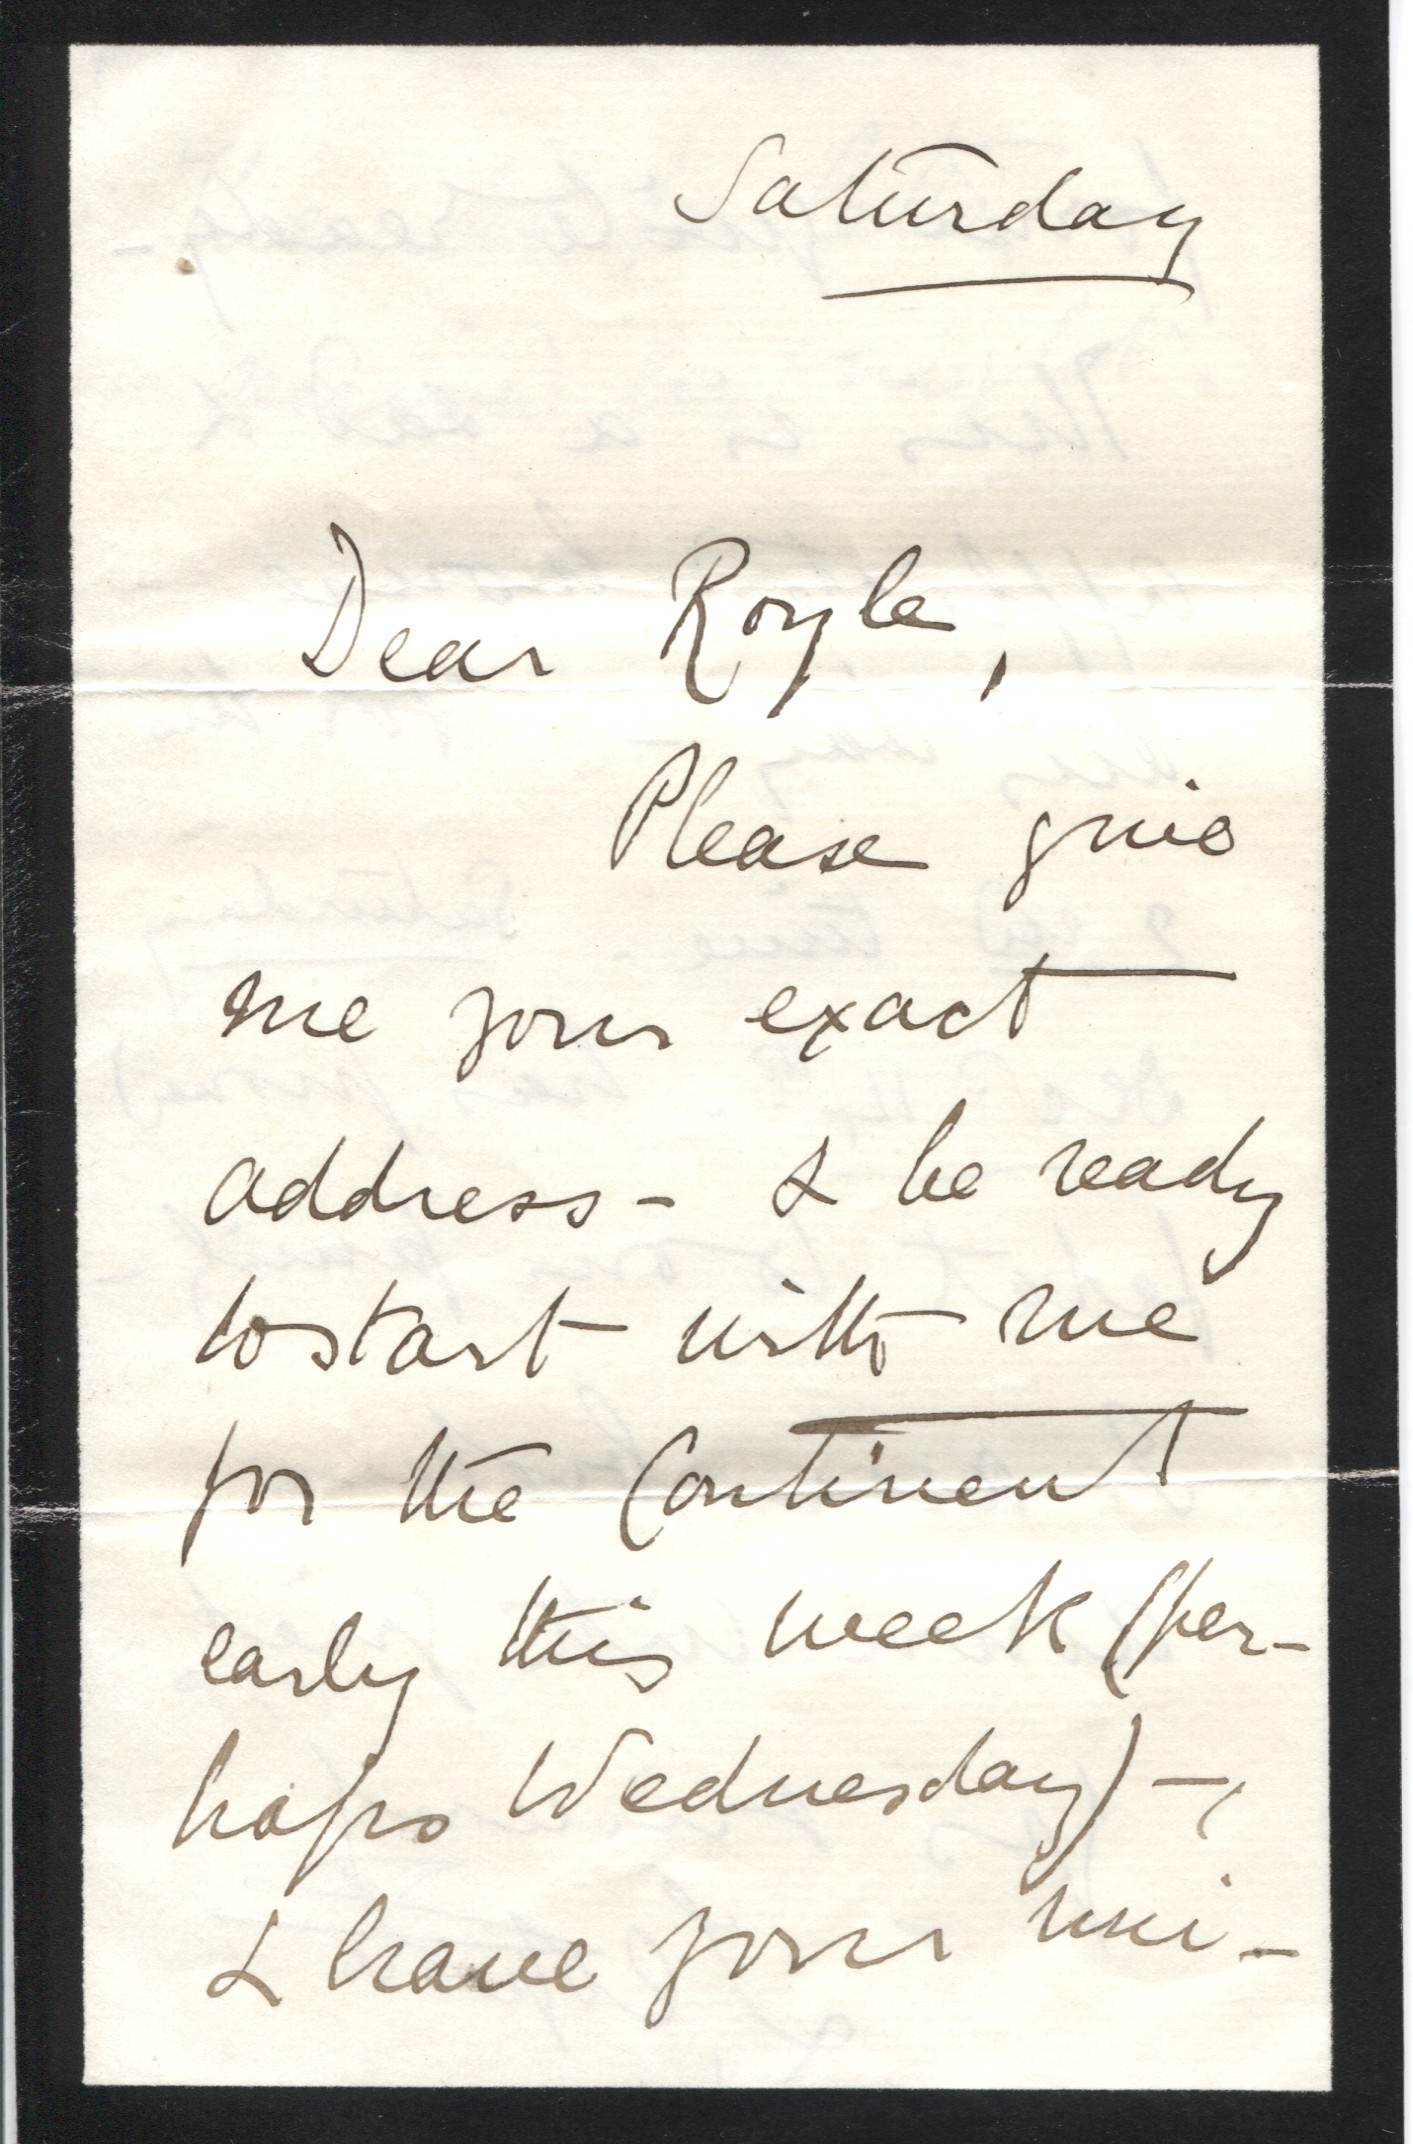 Saturday
Dear Royle,
Please give
me your exact
address - & be ready
to start with me
for the Continent
early this week (per-
haps Wednesday) -,
& have your uni-